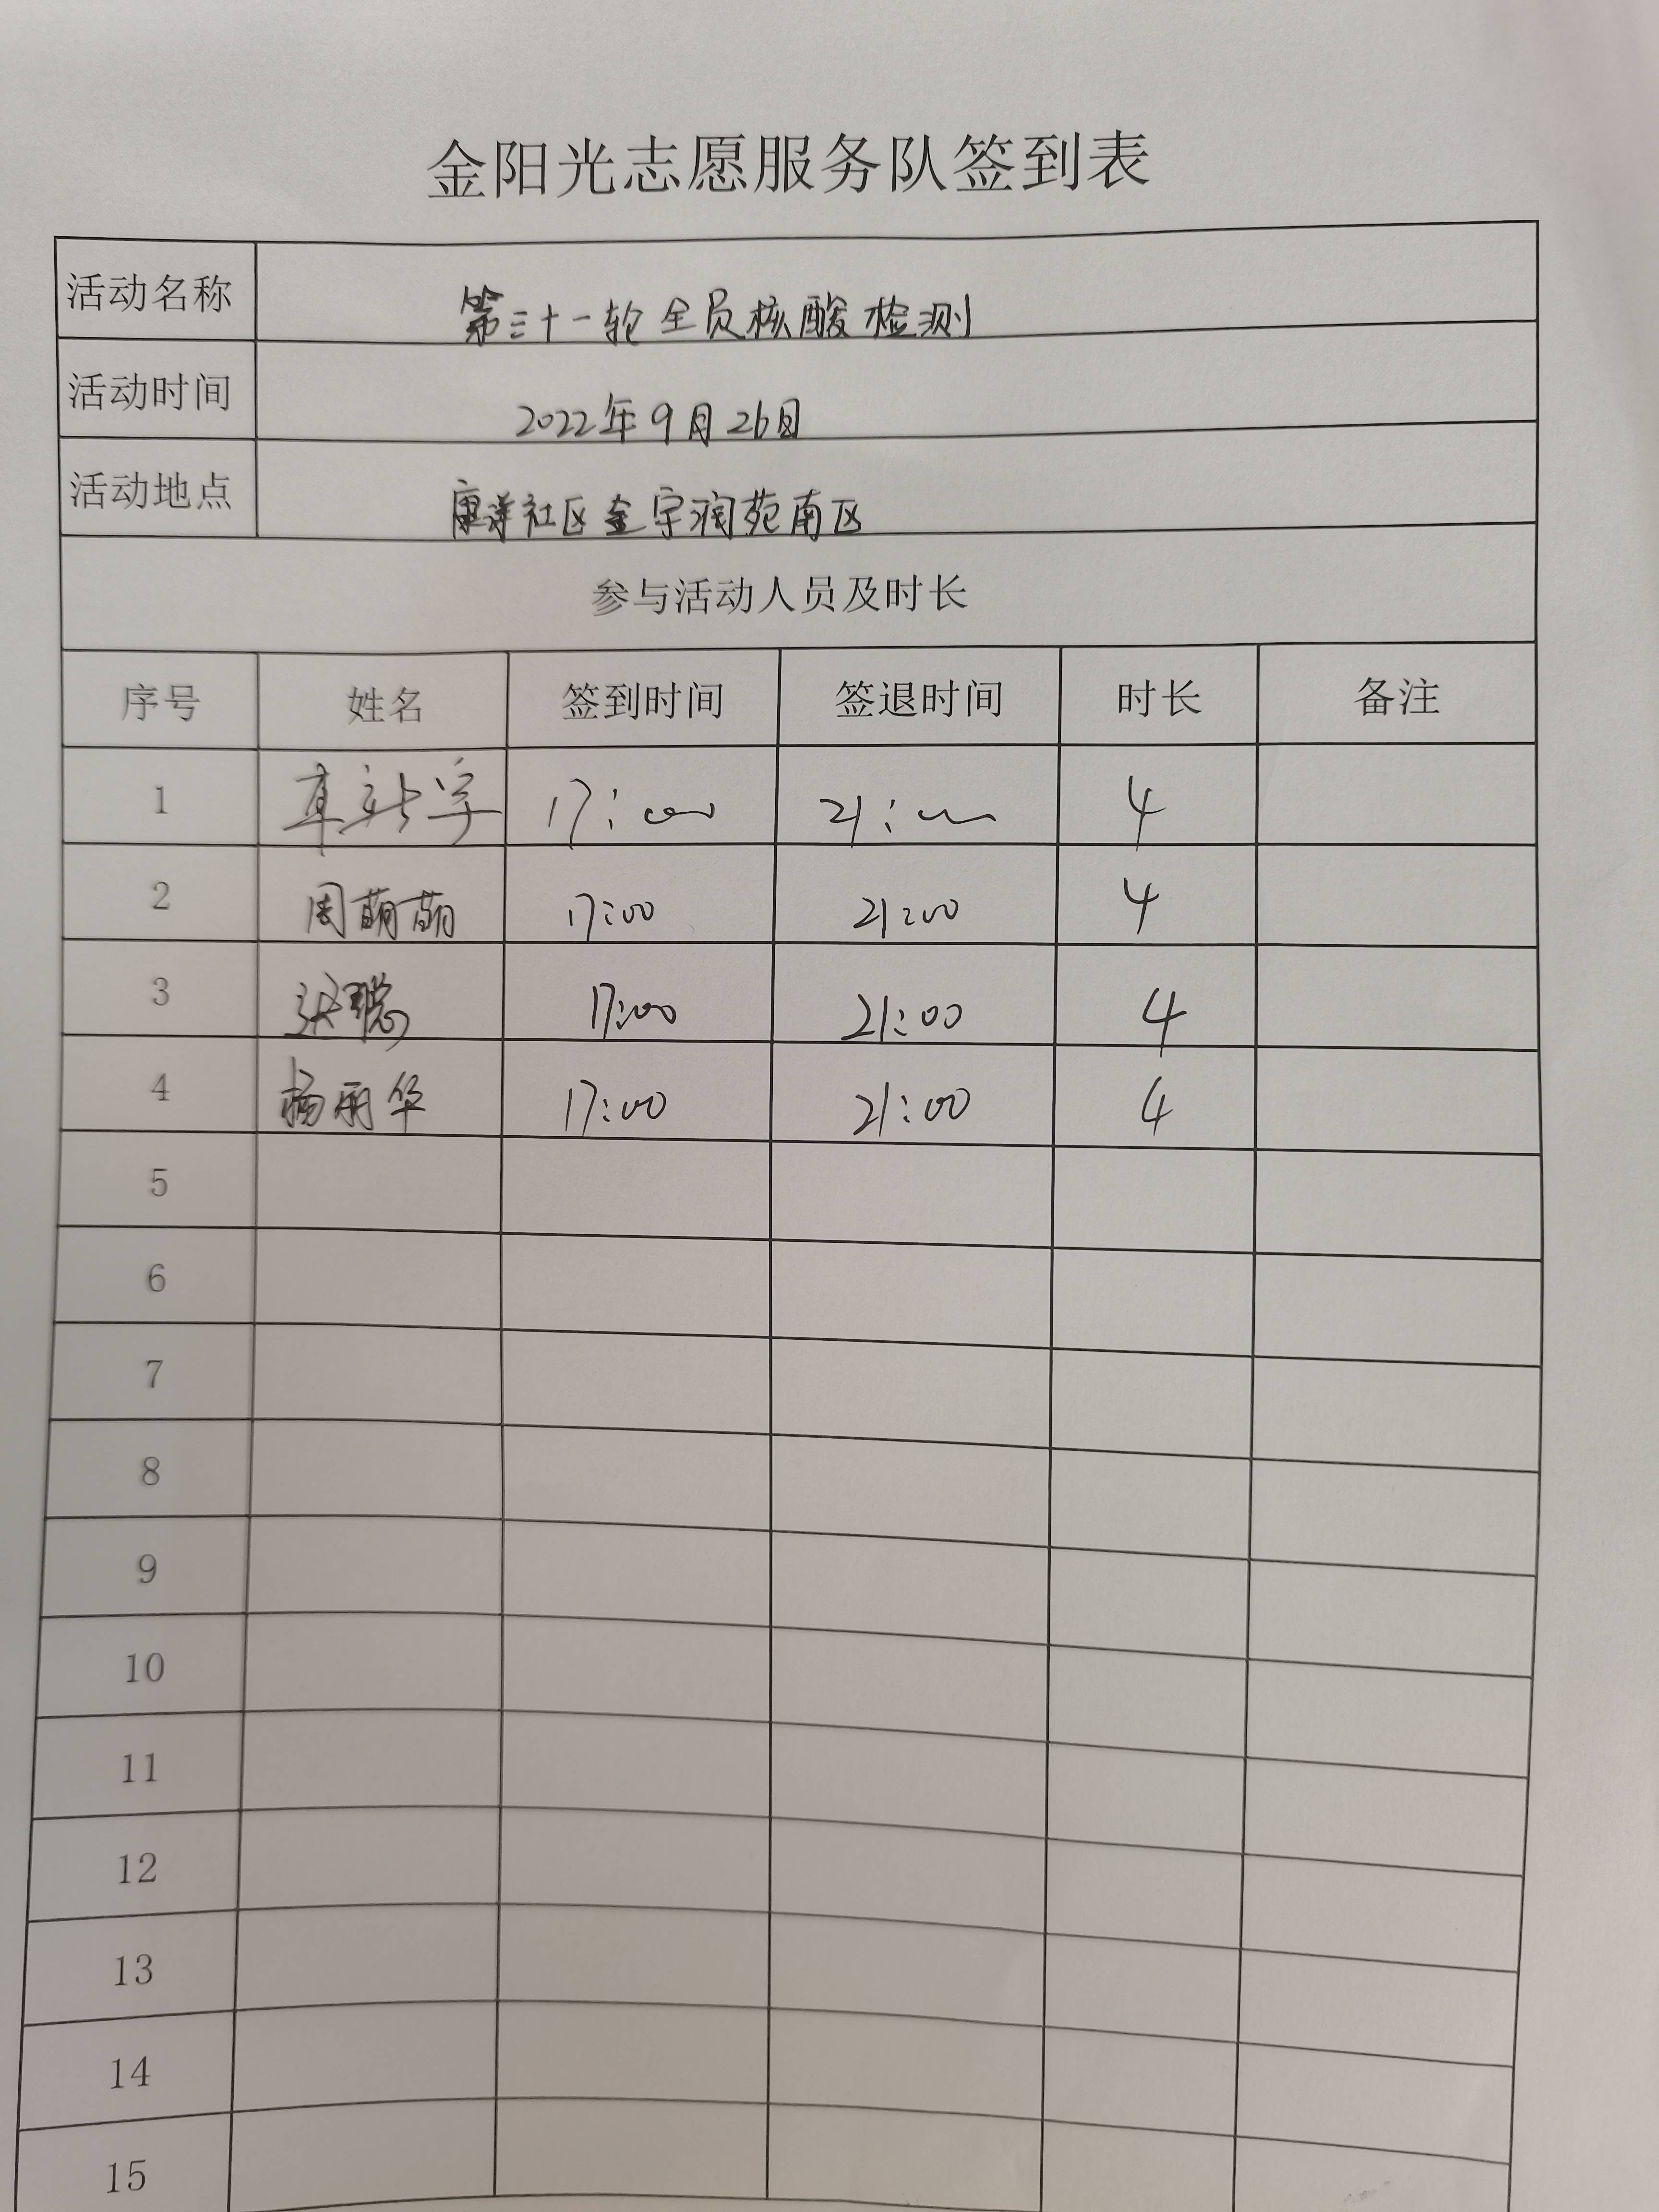 金阳光志愿服务队签到表
活动名称 第三十一轮全员核酸检测
活动时间 2022年9月26日
活动地点 康洋社区金宇润苑南区
参与活动人员及时长
序号 姓名 签到时间 签退时间 时长 备注
1 17:00 21:00 4
2 周萌萌 17:00 21:00 4
3 张聪 17:00 21:00 4
4 杨丽华 17:00 21:00 4
5
6
7
8
9
10
11
12
13
14
15